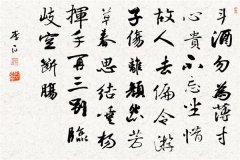 斗酒勿為薄寸
心貴不忘坐惜
故人去偏令遊
子傷離顏怨芳
草春思結垂楊
揮手再三別臨
歧空斷腸